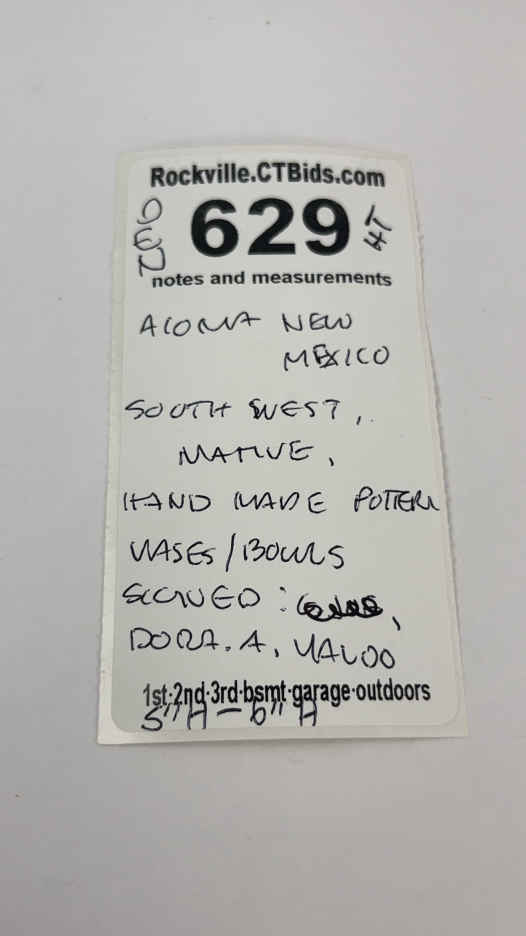 Rockville.CTBids.com
629
HT
notes and measurements
ACOMA NEW
MEXICO
SOUTH WEST,
NATIVE,
HAND MADE POTTERY
VASES/BOWLS
SIGNED: ,
DORA. A.
1st·2nd·3rd·bsmt·garage·outdoors
5"H-6"H